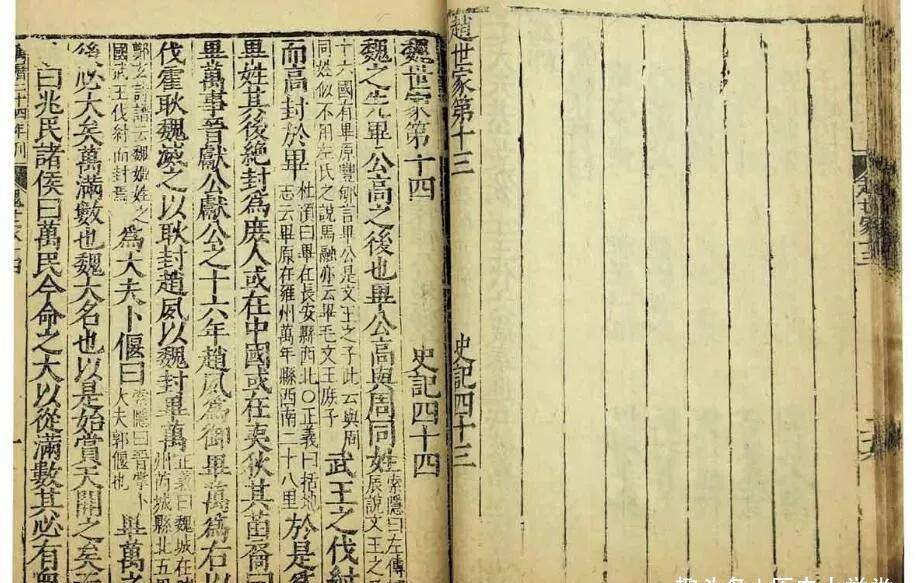 趙世家十三
趙世家第十三 史記四十三
魏世家第十四 史記四十四
魏之先畢公高之後也畢公高與周同姓
索隱曰左傳
辰說文王之
十六國有畢原豐郇言畢公是文王之子此云與周
同姓似不用左氏之說馬融亦云畢毛文王庶子
武王之伐紂
而高封於畢
杜預曰畢在長安縣西北〇正義曰括地
志云畢原在雍州萬年縣西南二十八里
於是爲
畢姓其後絕封爲庶人或在中國或在夷狄其苗裔曰
畢萬事晉獻公獻公之十六年趙夙爲御畢萬爲右以
伐霍耿魏滅之以耿封趙夙以魏封畢萬
正義曰魏城在陝
州芮城縣北五里
鄭玄詩譜云魏姬姓之
國武王伐紂而封焉
爲大夫卜偃曰
索隱曰晉掌卜
大夫郭偃也
畢萬之
後必大矣萬滿數也魏大名也以是始賞天開之矣天
曰兆民諸侯曰萬民今命之大以從滿數其必有眾
萬曆二十四年刊 魏世家十四